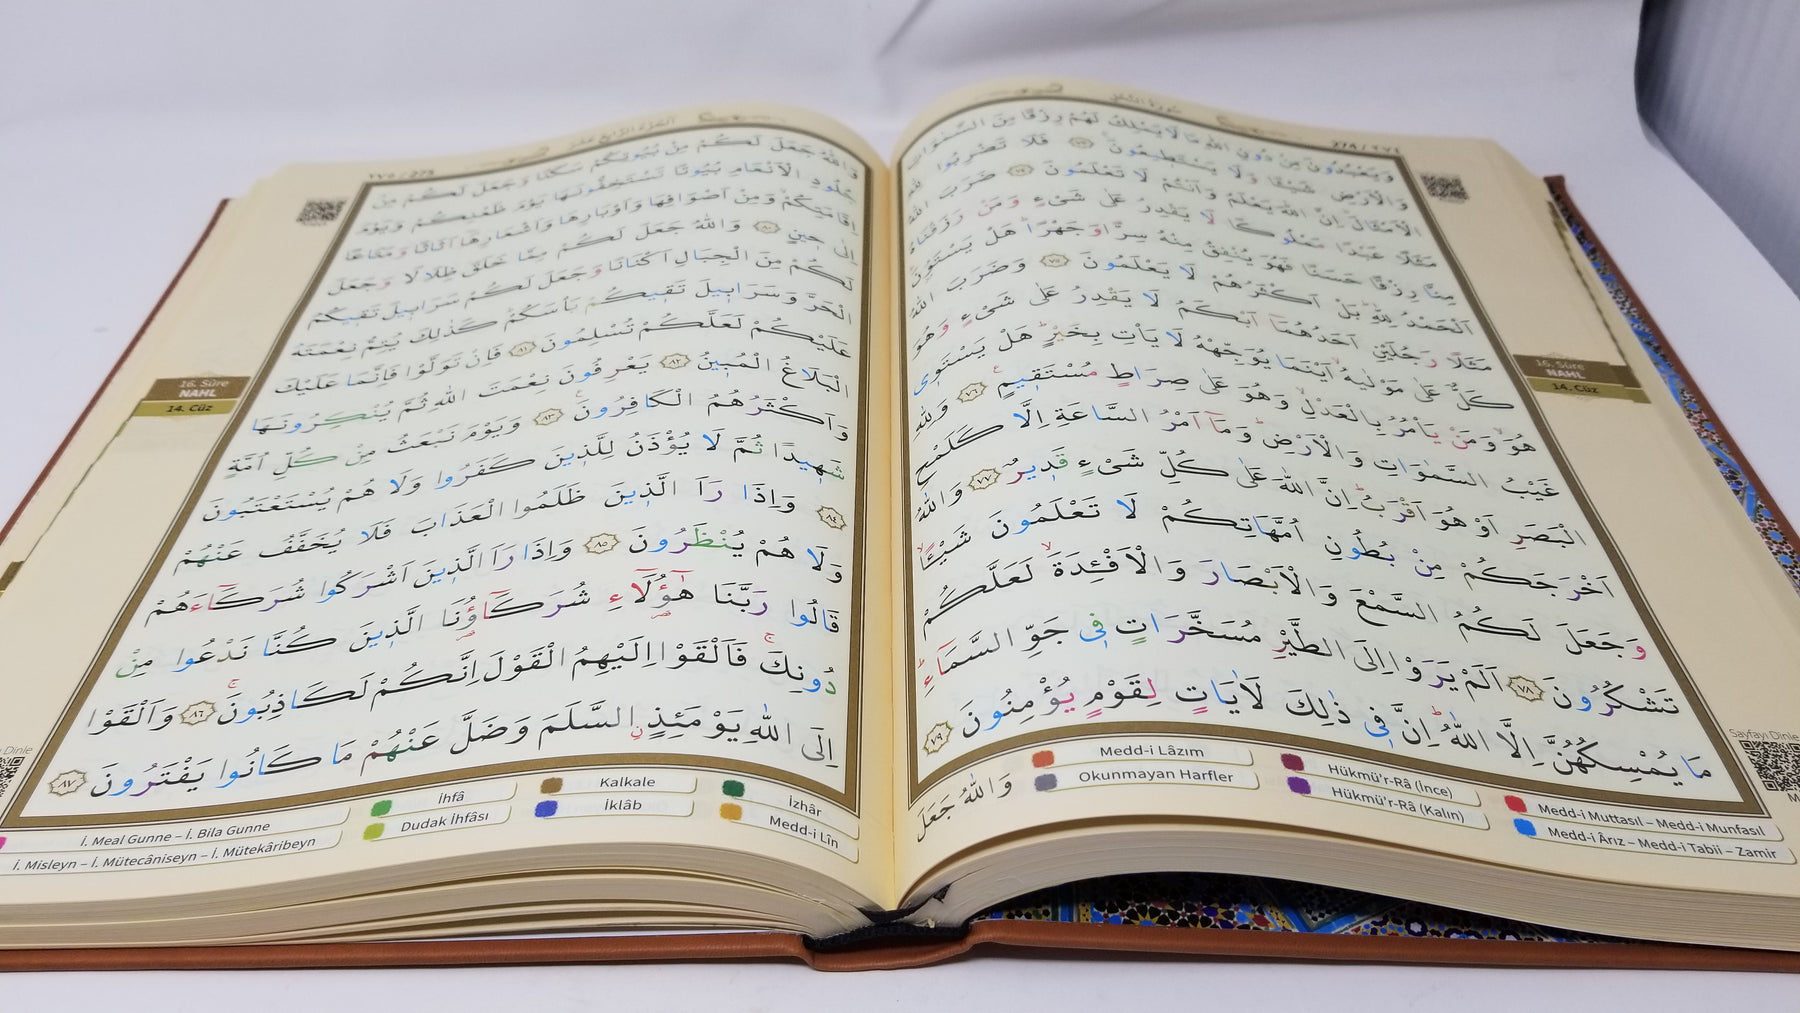 سُورَةُ النَّحْلِ
274 / ٢٧٤
وَيَعْبُدُونَ مِنْ دُونِ اللّٰهِ مَا لَا يَمْلِكُ لَهُمْ رِزْقًا مِنَ السَّمٰوَاتِ
وَالْاَرْضِ شَيْـًٔا وَلَا يَسْتَط۪يعُونَ ﴿٧٣﴾ فَلَا تَضْرِبُوا لِلّٰهِ
الْاَمْثَالَ اِنَّ اللّٰهَ يَعْلَمُ وَاَنْتُمْ لَا تَعْلَمُونَ ﴿٧٤﴾ ضَرَبَ اللّٰهُ
مَثَلًا عَبْدًا مَمْلُوكًا لَا يَقْدِرُ عَلٰى شَيْءٍ وَمَنْ رَزَقْنَاهُ
مِنَّا رِزْقًا حَسَنًا فَهُوَ يُنْفِقُ مِنْهُ سِرًّا وَجَهْرًا هَلْ يَسْتَوُ۫نَ
اَلْحَمْدُ لِلّٰهِ بَلْ اَكْثَرُهُمْ لَا يَعْلَمُونَ ﴿٧٥﴾ وَضَرَبَ اللّٰهُ
مَثَلًا رَجُلَيْنِ اَحَدُهُمَٓا اَبْكَمُ لَا يَقْدِرُ عَلٰى شَيْءٍ وَهُوَ
كَلٌّ عَلٰى مَوْلٰيهُ اَيْنَمَا يُوَجِّهْهُ لَا يَأْتِ بِخَيْرٍ هَلْ يَسْتَو۪ي
هُوَ وَمَنْ يَأْمُرُ بِالْعَدْلِ وَهُوَ عَلٰى صِرَاطٍ مُسْتَق۪يمٍ ﴿٧٦﴾ وَلِلّٰهِ
غَيْبُ السَّمٰوَاتِ وَالْاَرْضِ وَمَٓا اَمْرُ السَّاعَةِ اِلَّا كَلَمْحِ
الْبَصَرِ اَوْ هُوَ اَقْرَبُ اِنَّ اللّٰهَ عَلٰى كُلِّ شَيْءٍ قَد۪يرٌ ﴿٧٧﴾ وَاللّٰهُ
اَخْرَجَكُمْ مِنْ بُطُونِ اُمَّهَاتِكُمْ لَا تَعْلَمُونَ شَيْـًٔا
وَجَعَلَ لَكُمُ السَّمْعَ وَالْاَبْصَارَ وَالْاَفْـِٔدَةَ لَعَلَّكُمْ
تَشْكُرُونَ ﴿٧٨﴾ اَلَمْ يَرَوْا اِلَى الطَّيْرِ مُسَخَّرَاتٍ ف۪ي جَوِّ السَّمَٓاءِ
مَا يُمْسِكُهُنَّ اِلَّا اللّٰهُ اِنَّ ف۪ي ذٰلِكَ لَاٰيَاتٍ لِقَوْمٍ يُؤْمِنُونَ ﴿٧٩﴾
وَاللّٰهُ جَعَلَ
16. Sûre
NAHL
14. Cüz
Sayfayı Dinle
Medd-i Lâzım
Okunmayan Harfler
Hükmü'r-Râ (İnce)
Hükmü'r-Râ (Kalın)
Medd-i Muttasıl – Medd-i Munfasıl
Medd-i Ârız – Medd-i Tabii – Zamir
اَلْجُزْءُ الرَّابِعُ عَشَرَ
٢٧٥ / 275
وَاللّٰهُ جَعَلَ لَكُمْ مِنْ بُيُوتِكُمْ سَكَنًا وَجَعَلَ لَكُمْ مِنْ
جُلُودِ الْاَنْعَامِ بُيُوتًا تَسْتَخِفُّونَهَا يَوْمَ ظَعْنِكُمْ وَيَوْمَ
اِقَامَتِكُمْ وَمِنْ اَصْوَافِهَا وَاَوْبَارِهَا وَاَشْعَارِهَٓا اَثَاثًا وَمَتَاعًا
اِلٰى ح۪ينٍ ﴿٨٠﴾ وَاللّٰهُ جَعَلَ لَكُمْ مِمَّا خَلَقَ ظِلَالًا وَجَعَلَ
لَكُمْ مِنَ الْجِبَالِ اَكْنَانًا وَجَعَلَ لَكُمْ سَرَاب۪يلَ تَق۪يكُمُ
الْحَرَّ وَسَرَاب۪يلَ تَق۪يكُمْ بَأْسَكُمْ كَذٰلِكَ يُتِمُّ نِعْمَتَهُ
عَلَيْكُمْ لَعَلَّكُمْ تُسْلِمُونَ ﴿٨١﴾ فَاِنْ تَوَلَّوْا فَاِنَّمَا عَلَيْكَ
الْبَلَاغُ الْمُب۪ينُ ﴿٨٢﴾ يَعْرِفُونَ نِعْمَتَ اللّٰهِ ثُمَّ يُنْكِرُونَهَا
وَاَكْثَرُهُمُ الْكَافِرُونَ ﴿٨٣﴾ وَيَوْمَ نَبْعَثُ مِنْ كُلِّ اُمَّةٍ
شَه۪يدًا ثُمَّ لَا يُؤْذَنُ لِلَّذ۪ينَ كَفَرُوا وَلَا هُمْ يُسْتَعْتَبُونَ
﴿٨٤﴾ وَاِذَا رَاَ الَّذ۪ينَ ظَلَمُوا الْعَذَابَ فَلَا يُخَفَّفُ عَنْهُمْ
وَلَا هُمْ يُنْظَرُونَ ﴿٨٥﴾ وَاِذَا رَاَ الَّذ۪ينَ اَشْرَكُوا شُرَكَٓاءَهُمْ
قَالُوا رَبَّنَا هٰٓؤُ۬لَٓاءِ شُرَكَٓاؤُ۬نَا الَّذ۪ينَ كُنَّا نَدْعُوا مِنْ
دُونِكَ فَاَلْقَوْا اِلَيْهِمُ الْقَوْلَ اِنَّكُمْ لَكَاذِبُونَ ﴿٨٦﴾ وَاَلْقَوْا
اِلَى اللّٰهِ يَوْمَئِذٍ السَّلَمَ وَضَلَّ عَنْهُمْ مَا كَانُوا يَفْتَرُونَ ﴿٨٧﴾
16. Sûre
NAHL
14. Cüz
Dinle
İ. Meal Gunne – İ. Bila Gunne
İ. Misleyn – İ. Mütecâniseyn – İ. Mütekâribeyn
İhfâ
Dudak İhfâsı
Kalkale
İklâb
İzhâr
Medd-i Lîn